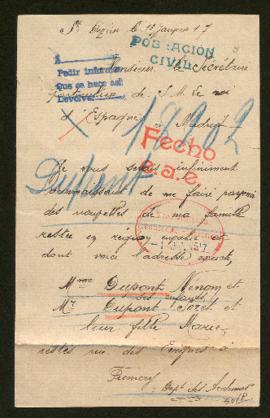 St Dizier le 12 janvier 17
POBLACIÓN
CIVIL
Monsieur le Secrétaire
Pedir informes
Que se haga así
Devolver
Particulier de S. M. le roi
d'Espagne
à Madrid
Fecho
p.a.e.
Dupont
Je vous serais infiniment
reconnaissant de me faire parvenir
des nouvelles de ma famille
restée en région envahie et
dont voici l'adresse exacte,
Mme Dupont
ses enfants
Mr Dupont et
leur fille Marie
rue des à
Dépt des Ardennes